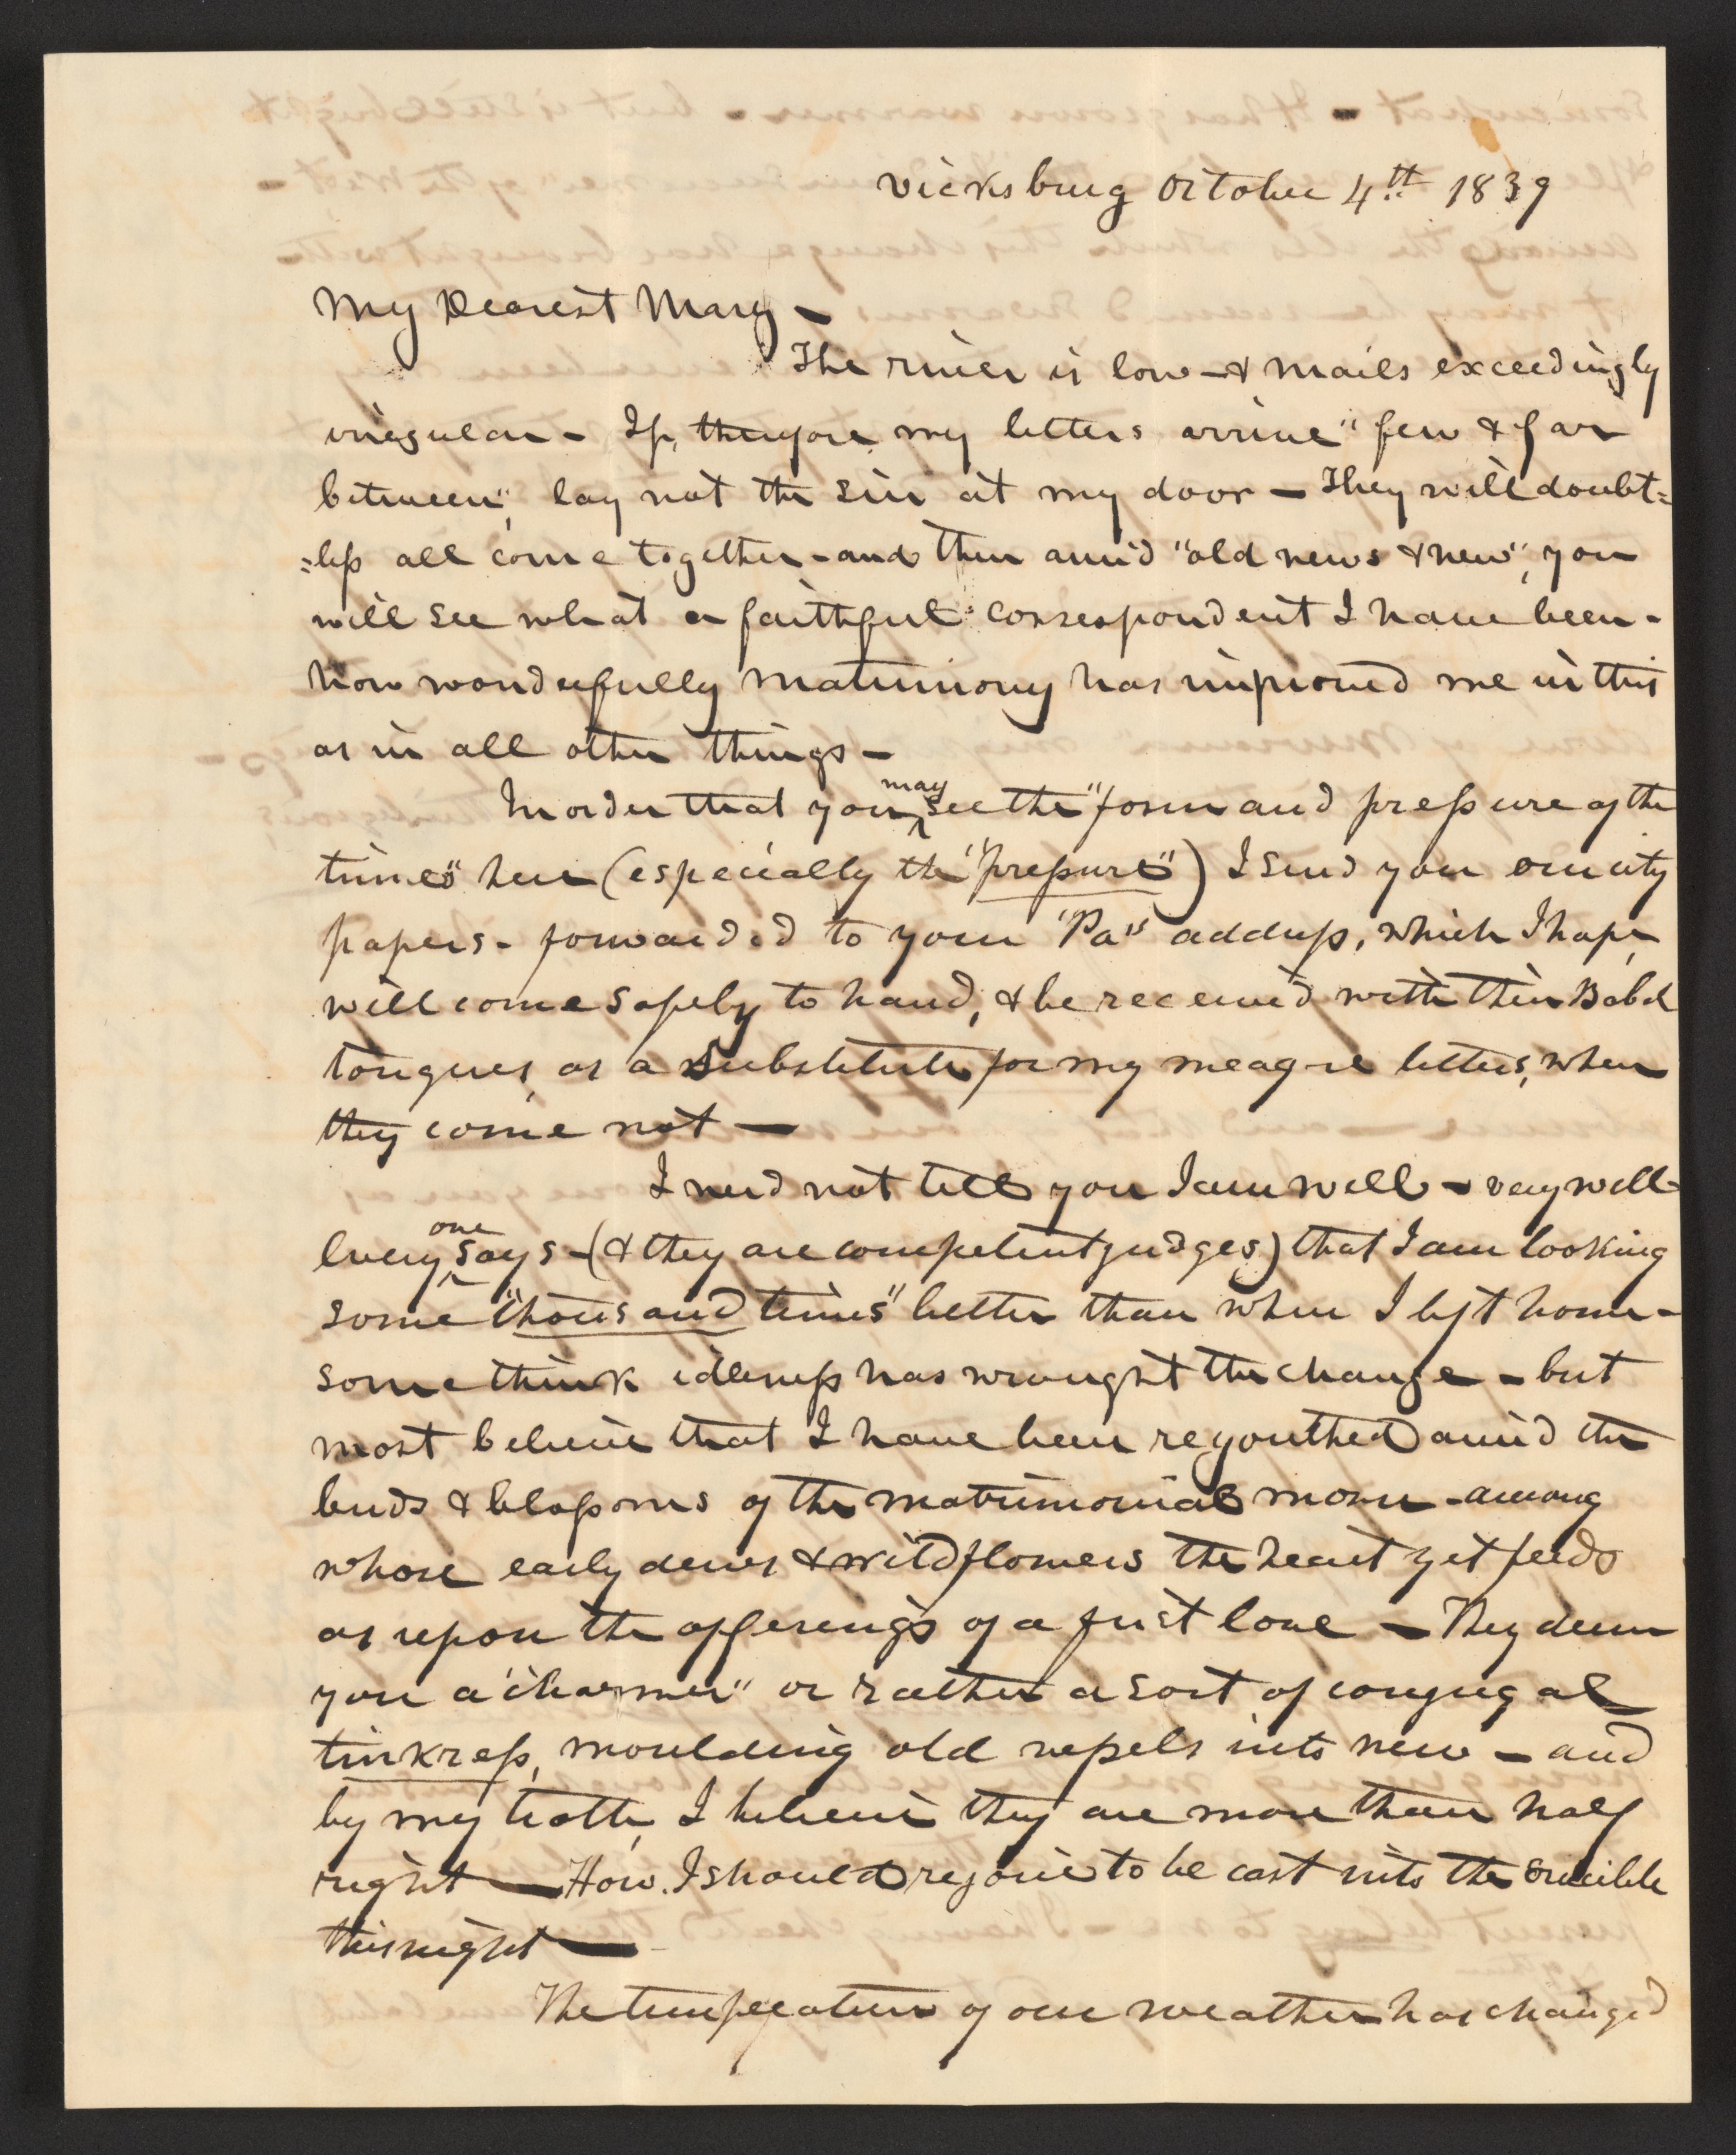 Vicksburg October 4th 1839
My Dearest Mary -
The river is low - & mails exceedingly
irregular - If, therefore, my letters arrive "few & far
between", lay not the sin at my door - They will doubt=
=less all come together - and then amid "old news & new", you
will see what a faithful correspondent I have been -
how wonderfully matrimony has improved me in this
as in all other things -
In order that you may see the "form and pressure of the
times" here (especially the "pressure") I send you our city
papers - forwarded to your "Pa's" address, which I hope,
will come safely to hand, & be received with their Babel
tongues, as a substitute for my meagre letters, when
they come not -
I need not tell you I am well - very well
Every one says - (& they are competent judges) that I am looking
some "thousand times" better than when I left home -
some think idleness has wrought the change - but
most believe that I have been reyouthed amid the
buds & blossoms of the matrimonial morn - among
whose early dews & wildflowers the heart yet feeds
as upon the offerings of a first love - They deem
you a "charmer" or rather a sort of conjugal
tinkress, moulding old vessels into new - and
by my troth, I believe they are more than half
right - How I should rejoice to be cast into the crucible
this night -
The temperature of our weather has changed